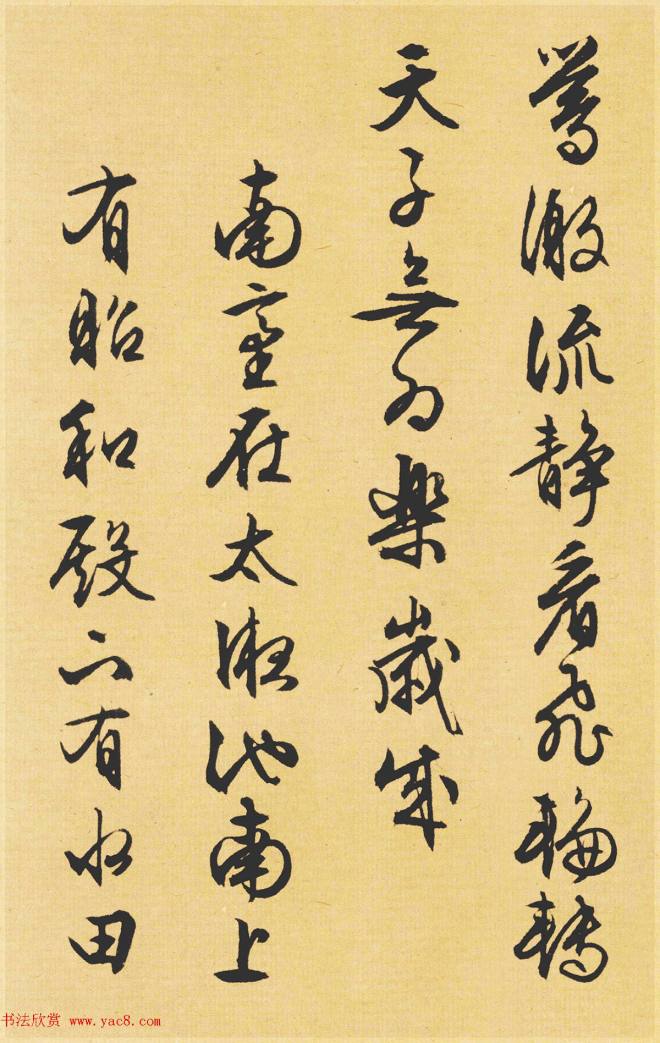 激流静看飛輪轉
天子無為樂歲成
南臺在太液池南上
有昭和殿下有水田
书法欣赏 www.yac8.com